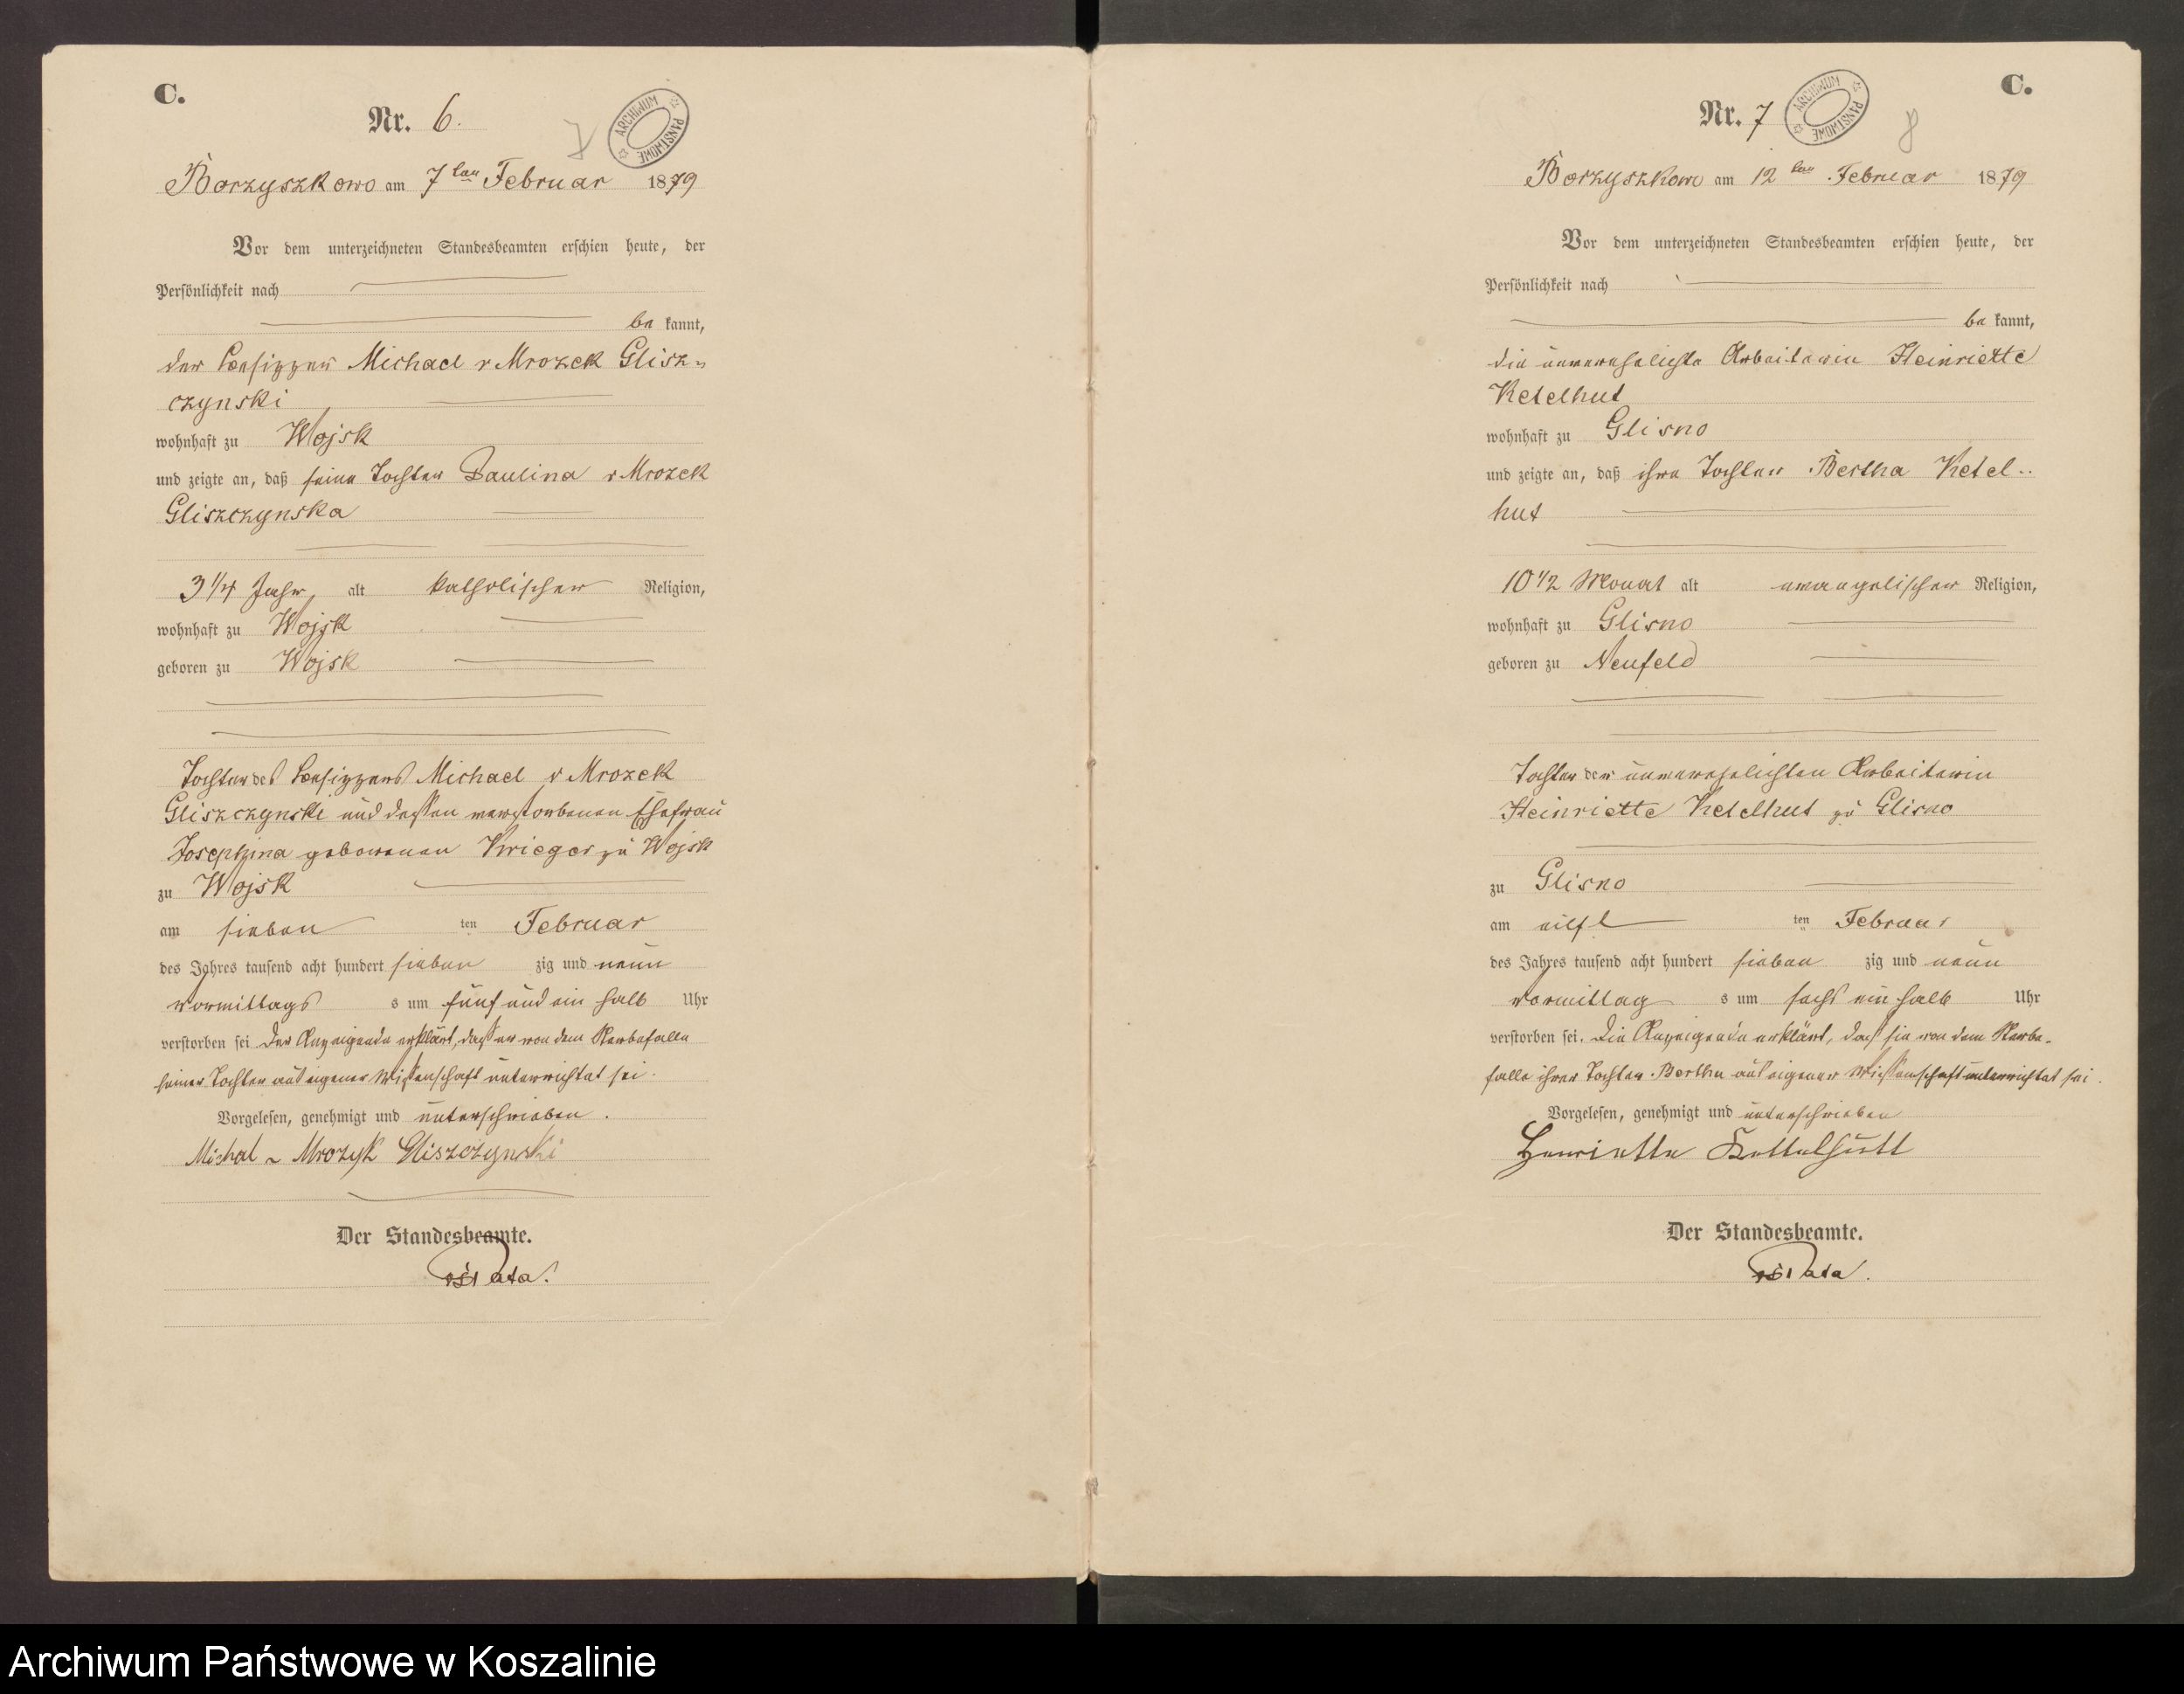 C.
Nr. 6.
ARCHIWUM PAŃSTWOWE
Borzyszkowo am 7ten Februar 1879
Vor dem unterzeichneten Standesbeamten erschien heute, der
Persönlichkeit nach
be kannt,
der Besitzer Michael v Mrozek Glisz-
czynski
wohnhaft zu Wojsk
und zeigte an, daß seine Tochter Paulina v Mrozek
Gliszczynska
3 1/4 Jahr alt katholischer Religion,
wohnhaft zu Wojsk
geboren zu Wojsk
Tochter des Besitzers Michael v Mrozek
Gliszczynski und dessen verstorbenen Ehefrau
Josephina geborenen Krieger zu Wojsk
zu Wojsk
am sieben ten Februar
des Jahres tausend acht hundert sieben zig und neun
vormittags s um fünf und ein halb Uhr
verstorben sei Der Anzeigende erklärt, dass er von dem Sterbefalle
seiner Tochter aus eigener Wissenschaft unterrichtet sei.
Vorgelesen, genehmigt und unterschrieben.
Michal v Mrozyk Gliszczynski
Der Standesbeamte.
C.
Nr. 7
8
ARCHIWUM PAŃSTWOWE
Borzyszkowo am 12ten Februar 1879
Vor dem unterzeichneten Standesbeamten erschien heute, der
Persönlichkeit nach
be kannt,
die unverehelichte Arbeiterin Heinriette
Ketelhut
wohnhaft zu Glisno
und zeigte an, daß ihre Tochter Bertha Ketel-
hut
10 1/2 Monat alt evangelischer Religion,
wohnhaft zu Glisno
geboren zu Neufeld
Tochter der unverehelichten Arbeiterin
Heinriette Ketelhut zu Glisno
zu Glisno
am eilf ten Februar
des Jahres tausend acht hundert sieben zig und neun
vormittag s um sechs ein halb Uhr
verstorben sei. Die Anzeigende erklärt, dass sie von dem Sterbe-
falle ihrer Tochter Bertha aus eigener Wissenschaft unterrichtet sei.
Vorgelesen, genehmigt und unterschrieben
Henriette Kettelhutt
Der Standesbeamte.
Archiwum Państwowe w Koszalinie